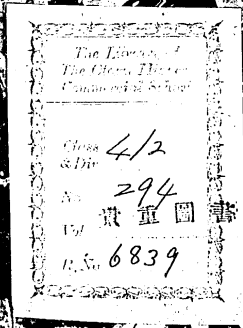 The Library of
The Otaru Higher
Commercial School
Class 4/2
& Div.
No. 294
貴重圖書
Vol.
R. No 6839